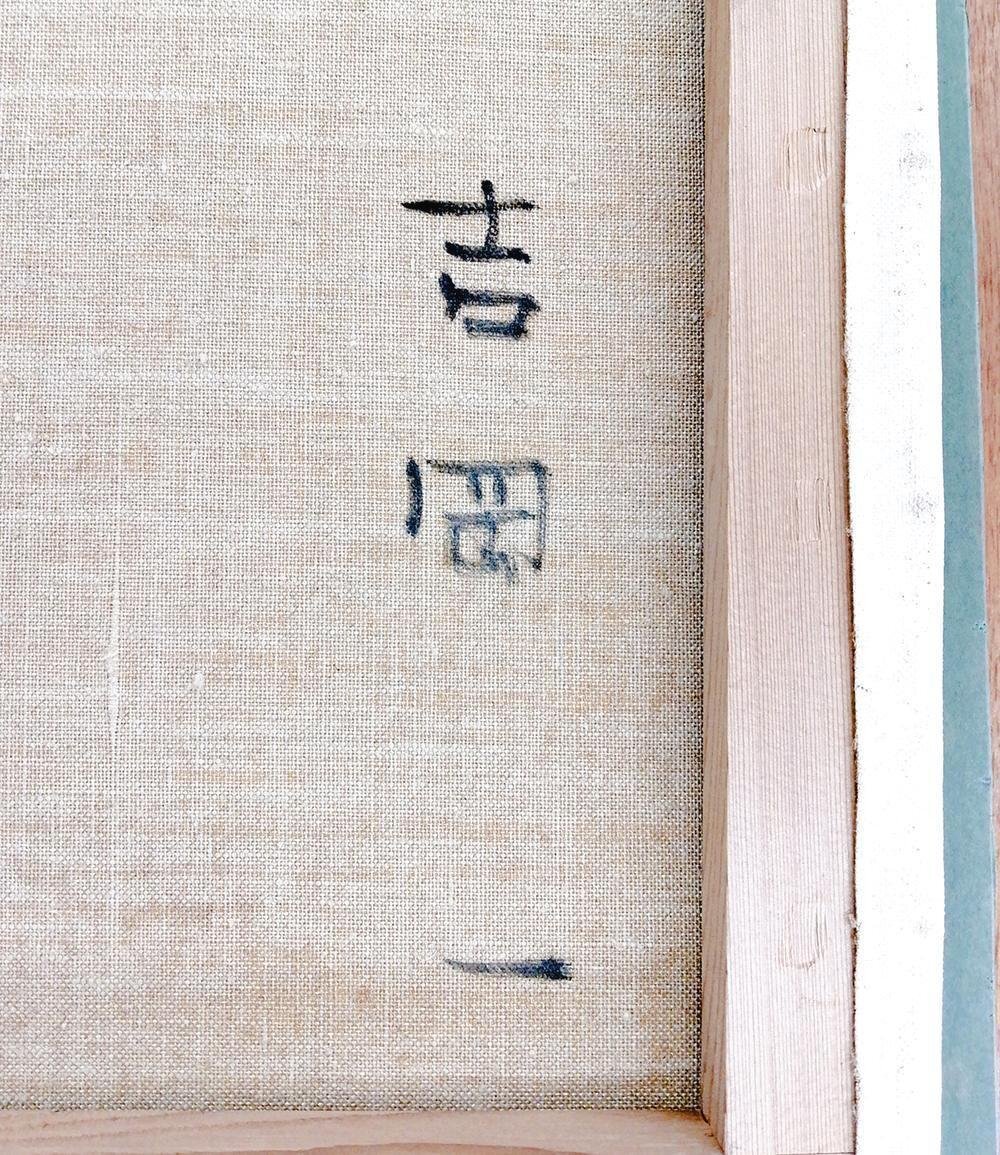 吉岡一